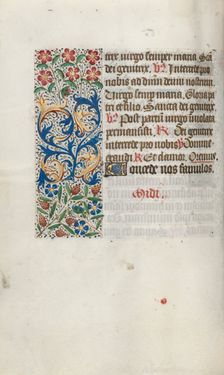 trix virgo semper maria Sca
dei genitrix. V. Intercede pro
nobis ad dnm deum nostrum
Virgo semp maria. Gloria pa
tri et filio. Sancta dei genitrix
V. Post partum virgo inviolata
permansisti. R. Dei genitrix
intercede pro nobis. V. Domine
exaudi. R. Et clamor. Oremus.
Concede nos famulos
Midi.